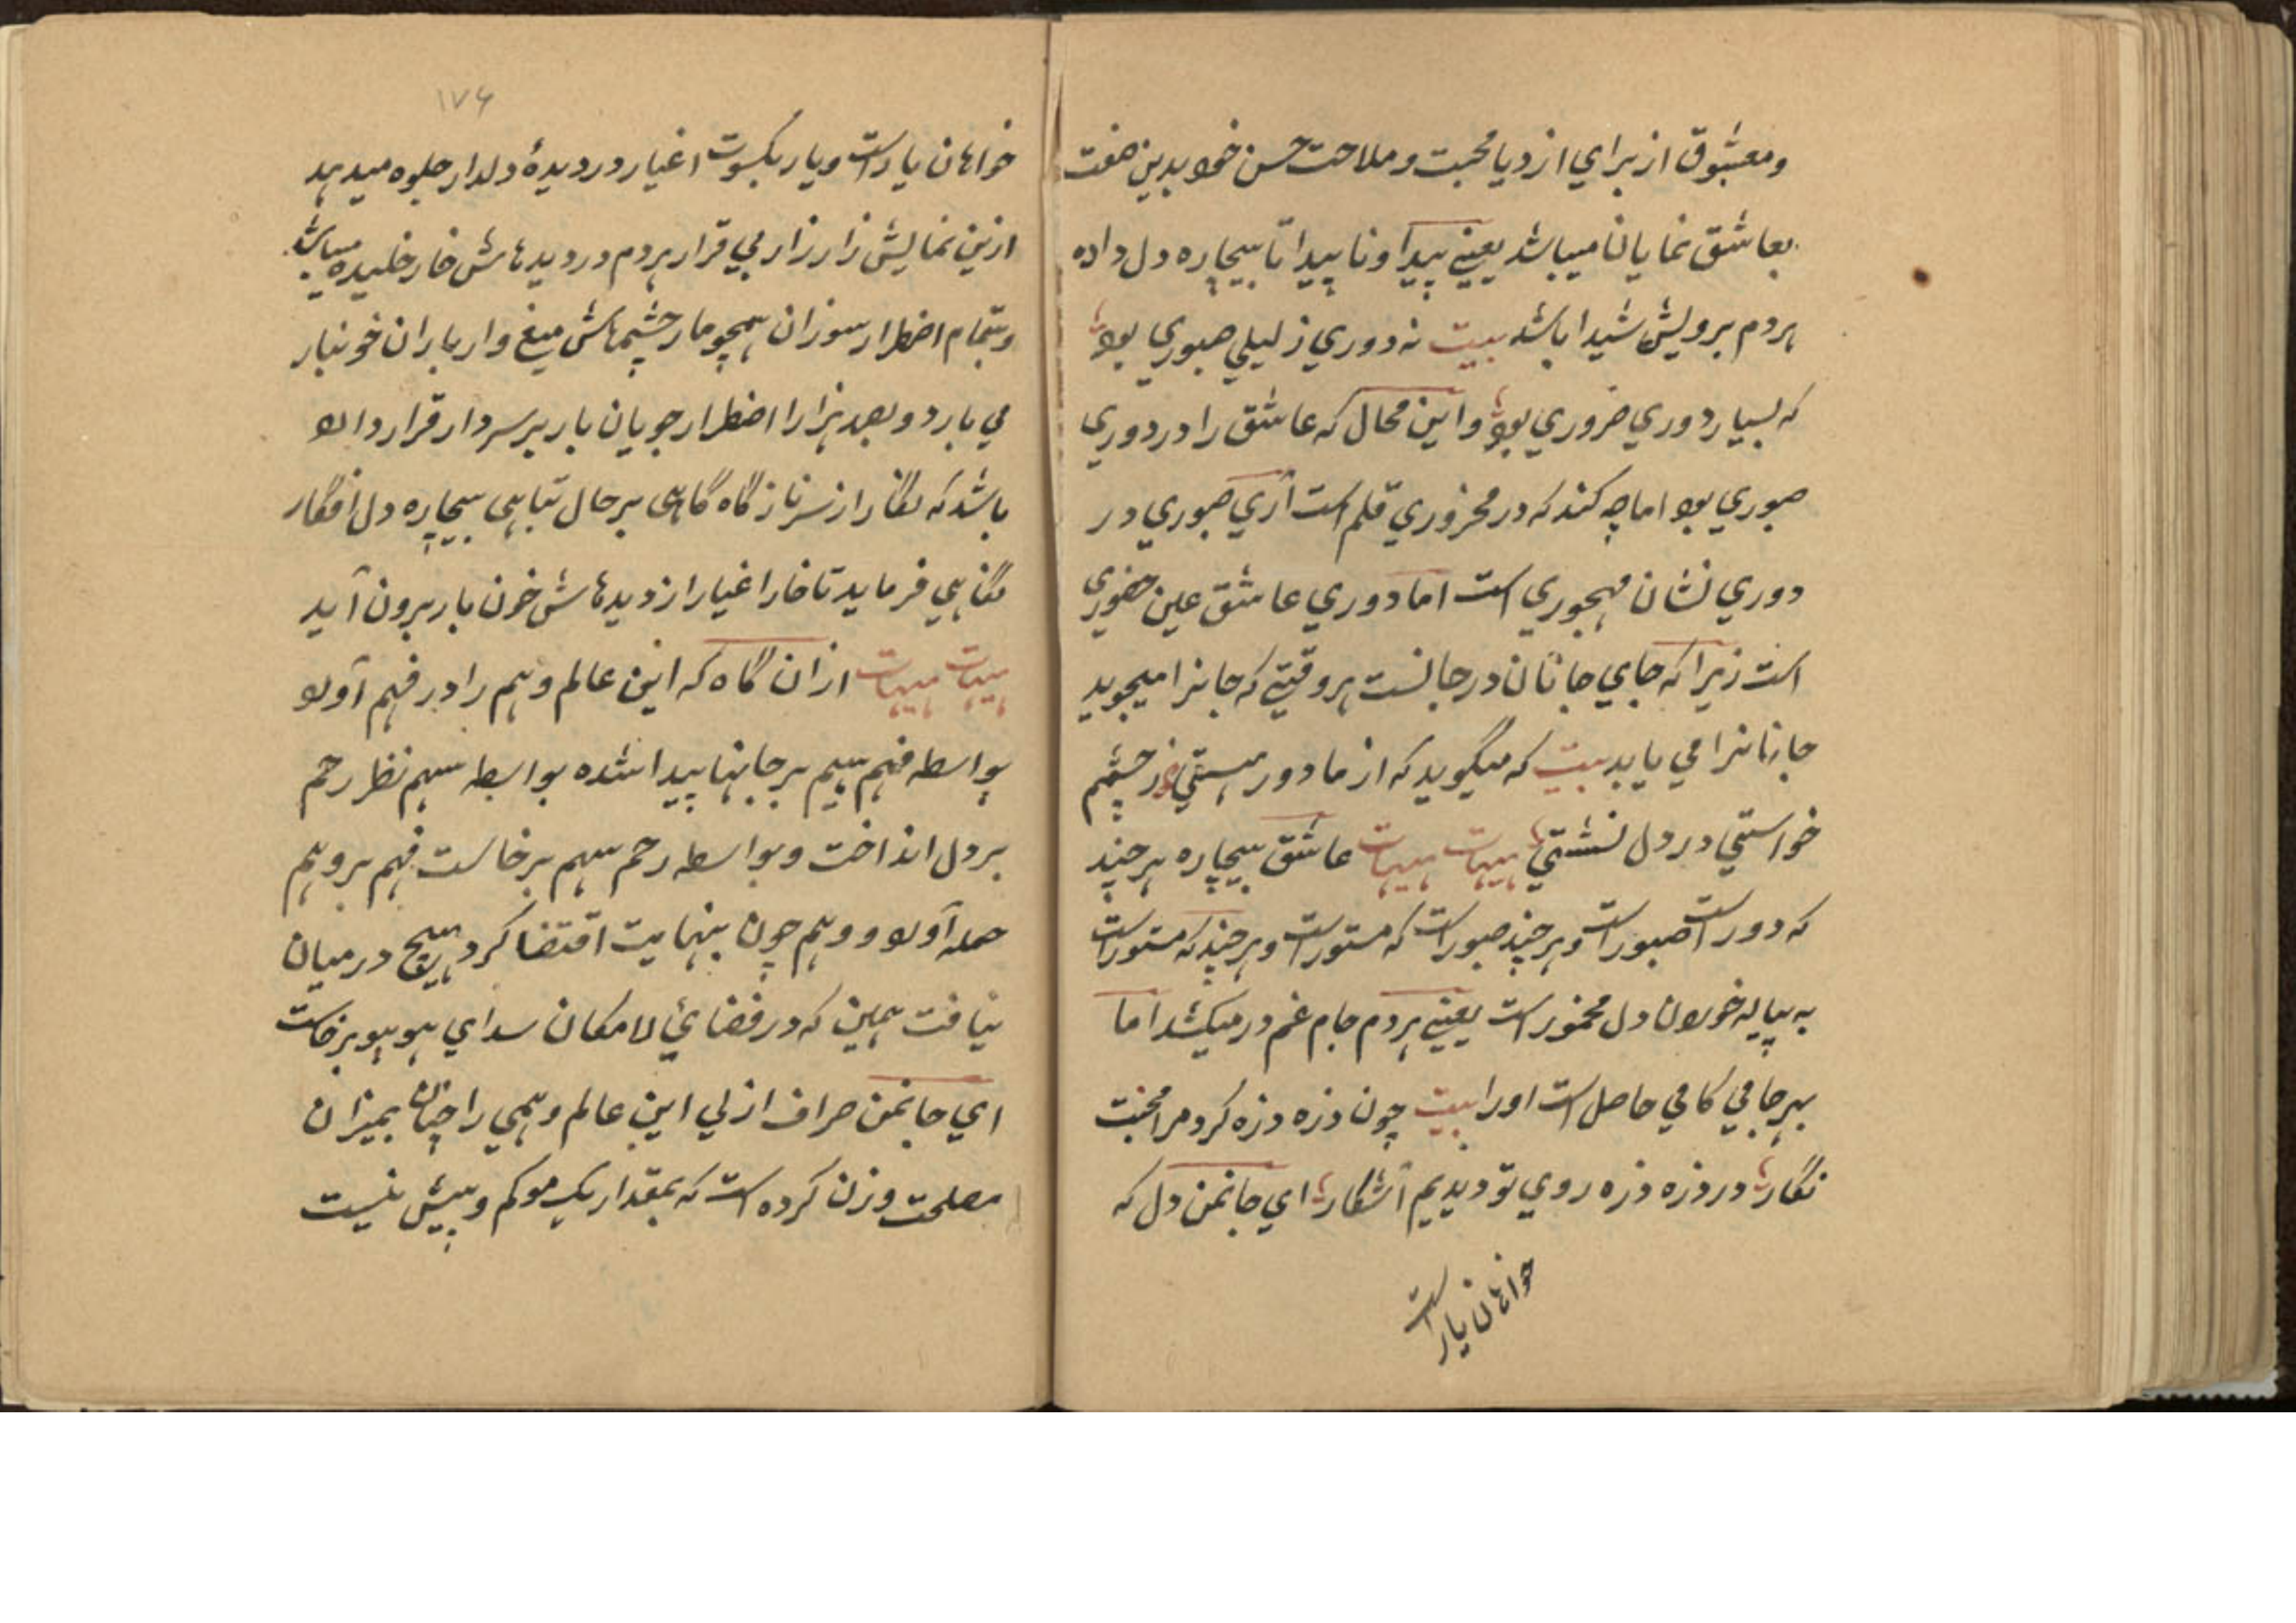 ومعشوق از براي ازديا محبت وملاحت حسن خود بدين صفت
بعاشق نمايان ميباشد يعني پيدا و ناپيدا تا بيچاره دل داده
هردم برويش شيدا باشد بيت نه دوري ز ليلي صبوري بود
که بسيار دوري ضروري بود واين محال که عاشق را در دوري
صبوري بود اما چه کند که در محزوري قلم است آري صبوري در
دوري نشان مهجوري است اما دوري عاشق عين حضوري
است زيرا که جاي جانان در جانست هر وقتي که جانرا ميجويد
جانانرا مي يابد بيت که ميگويد که از ما دور هستي ز چشم
خواستي در دل نشستي هيهات هيهات عاشق بيچاره هر چند
که دور است صبور است وهر چند صبور است که مستور است وهر چند که مستور است
به پياله خوردن دل مخمور است يعني هردم جام غم در ميکشد اما
بهر جامي کامي حاصل است اورا بيت چون ذره ذره کرد مرا محبت
نگار در ذره ذره روي تو ديديم آشکار اي جانمن دل که
خواهان يار است
۱۷۶
خواهان يار است ويار بکسوت اغيار در ديدۀ دلدار جلوه ميدهد
ازين نمايش زار زار بي قرار هردم در ديدهاش خار خليده ميباشد
وبتمام اضطرار سوزان همچو مار چشمهاش ميغ وار باران خونبار
مي بارد وبصد هزارا اضطرار جويان يار بر سر دار قرار داد
باشد که نگار از سر ناز گاه گاهی بر حال تباهي بيچاره دل افگار
نگاهي فرمايد تا خار اغيار از ديدهاش خون بار برون آيد
هيهات هيهات ازان گاه که اين عالم وهم را در فهم آورد
بواسطه فهم بيم بر جانها پيدا شده بواسطه سهم نظر رحم
بر دل انداخت وبواسطه رحم سهم برخاست فهم بر وهم
حمله آورد ووهم چون بنهايت اقتضا کرد هيچ درميان
نيافت همين که در فضائي لامکان سداي هو هو برخاست
اي جانمن صراف ازلي اين عالم وهمي را چنان بميزان
مصلحت وزن کرده است که بمقدار يک مو کم وبيش نيست